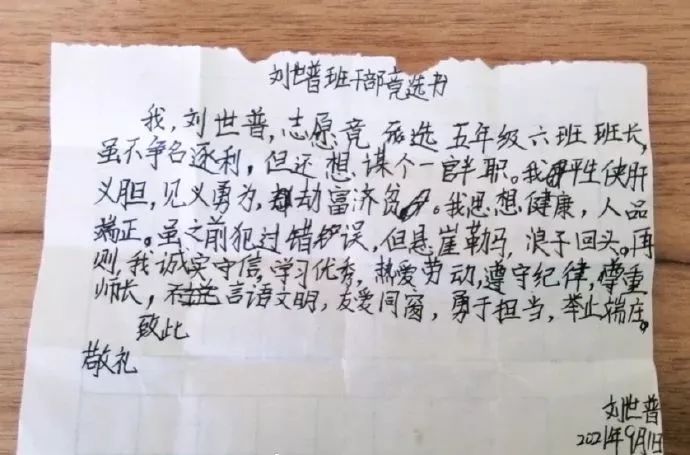 刘世普班干部竞选书
我,刘世普,志愿竞选五年级六班班长,
虽不争名逐利,但还想谋个一官半职。我平生侠肝
义胆,见义勇为,劫富济贫。我思想健康,人品
端正。虽之前犯过错误,但悬崖勒马,浪子回头。再
则,我诚实守信,学习优秀,热爱劳动,遵守纪律,尊重
师长,言语文明,友爱同窗,勇于担当,举止端庄。
致此
敬礼
刘世普
2021年9月1日